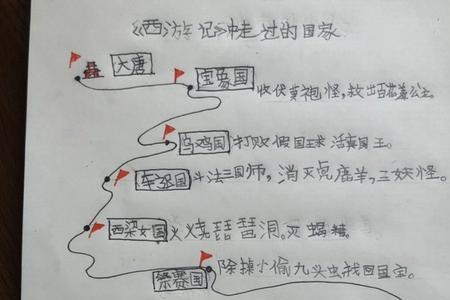 《西游记》中走过的国家
大唐
宝象国
收伏黄袍怪,救出百花羞公主
乌鸡国 打败假国王求活真国王。
车迟国 斗法三国师,消灭虎鹿羊三妖怪。
西梁女国 火烧琵琶洞。灭蝎精。
祭赛国 除掉小偷九头虫找回国宝。